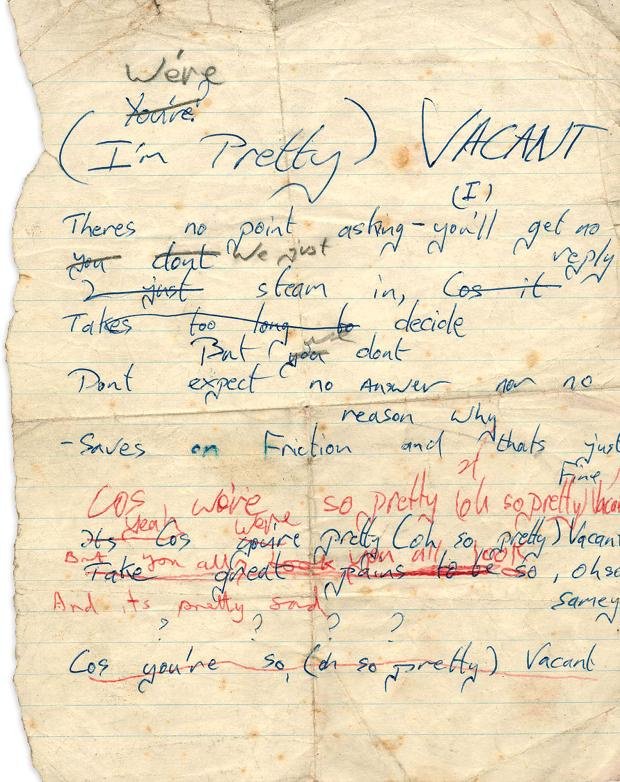 We're
You're
(I'm Pretty) VACANT
(I)
Theres no point asking - you'll get no
you dont We just reply
I just steam in, Cos it
Takes too long to decide
But you just dont
Dont expect no Answer nor no
reason why
- Saves on Friction and thats just
Fine,
Cos we're so pretty (oh so pretty) Vacant
yeah we're
Its Cos you're pretty (oh so pretty) Vacant
But you all look you all look
Take great pains to be so, ohso
And its pretty sad samey
? ? ? ?
Cos you're so, (oh so pretty) Vacant